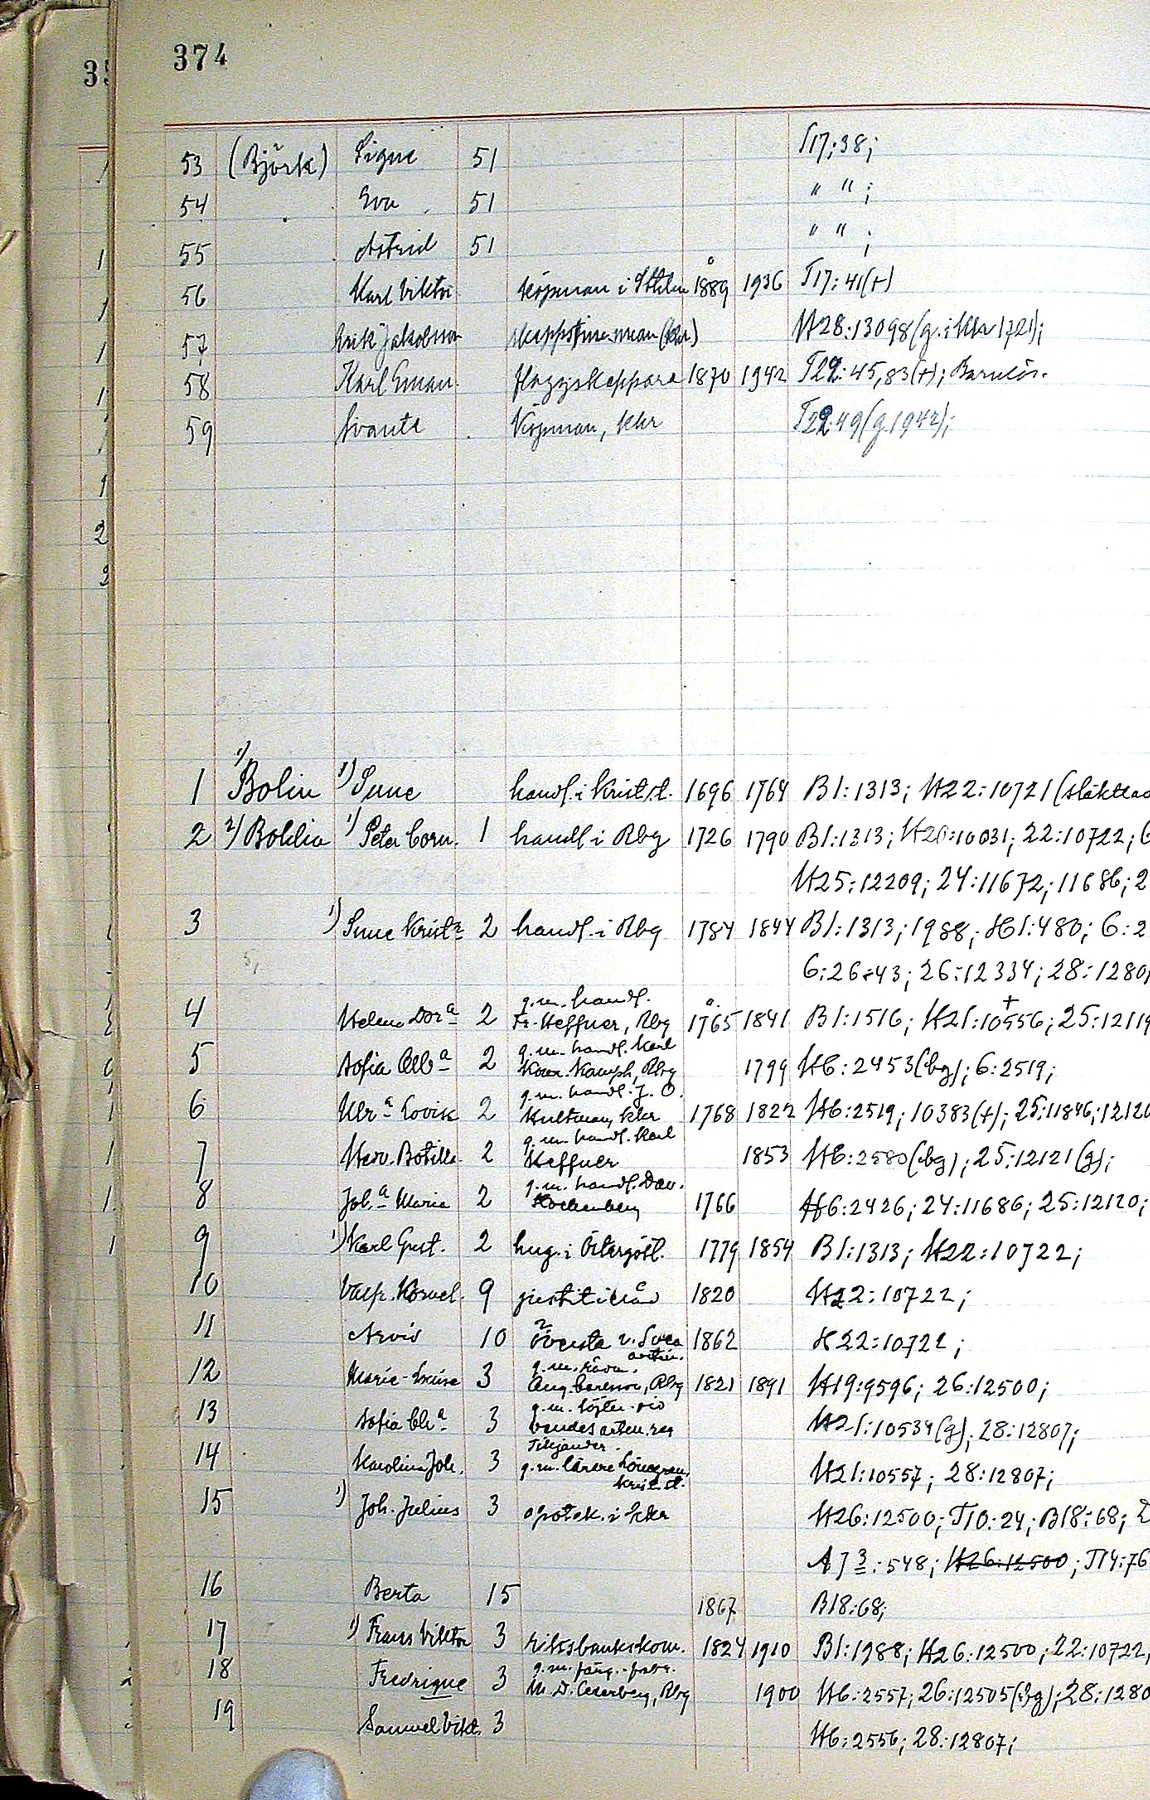 374
53 (Björk) Signe 51 T17:38;
54 Eva 51 " " ;
55 Astrid 51 " " ;
56 Karl Viktor köpman i Sthlm 1889 1936 T17:41(+)
57 Erik Jakobsson skeppstimmerman (Khr) H28:13098(g. i Khr 1721);
58 Karl Eman. flaggskeppare 1870 1942 T22:45,83(+); Barnlös.
59 Svante Köpman, Khr T22:49(g.1942);
1)
1 Bolin 1) Sune handl. i Krist.st. 1696 1764 B1:1313; H22:10721
2 2) Bohlin 1) Peter Corn. 1 handl i Rbg 1726 1790 B1:1313; H20:10031; 22:10722; 6
H25:12209; 24:11672; 11686; 2
3 1) Sune Krist:n 2 handl. i Rbg 1784 1844 B1:1313; 1988; H1:480; 6:2
6:26-43; 26:12334; 28:1280
g.m. handl.
4 Helena Dor:a 2 Fr. Heffner, Rbg 1765 1841 B1:1516; H21:10556; 25:12119
g.m. handl. Karl
5 Sofia Alb:a 2 Rbg 1799 H6:2453(bg); 6:2519;
g.m. handl. J. O.
6 Ulr:a Lovis 2 Hultman, Khr 1768 1822 H6:2519; 10383(+); 25:11846; 12120
g.m. handl. Karl
7 Hedv. Botilla 2 Heffner 1853 H6:2580(bg); 25:12121(g);
g.m. handl. Dav.
8 Joh:a Maria 2 1766 H6:2426; 24:11686; 25:12120;
9 1) Karl Gust. 2 hug. i Östergötl. 1779 1854 B1:1313; H22:10722;
10 9 justitieråd 1820 H22:10722;
11 Arvid 10 överste v. Svea 1862 H22:10722;
artri.
12 Maria-Lovisa 3 Aug. Carlsson, Rbg 1821 1891 H19:9596; 26:12500;
g.m. löjtn. vid
13 Sofia Ch:a 3 Vendes arten. reg H21:10534(g); 28:12807;
14 Karolina Joh. 3 g.m. lärare H21:10557; 28:12807;
Krist.st.
15 1) Joh. Julius 3 apotek. i Khr H26:12500; T10:24; B18:68;
A73:548; H26:12500; T14:76
16 Berta 15 1867 B18:68;
17 1) Frans Viktor 3 riksbankskom. 1824 1910 B1:1988; H26:12500; 22:10722,
g.m. färg.-fabr.
18 Fredrique 3 M. D. Cederberg, Rbg 1900 H6:2557; 26:12505(bg); 28:1280
19 Samuel Vikt. 3 H6:2556; 28:12807;